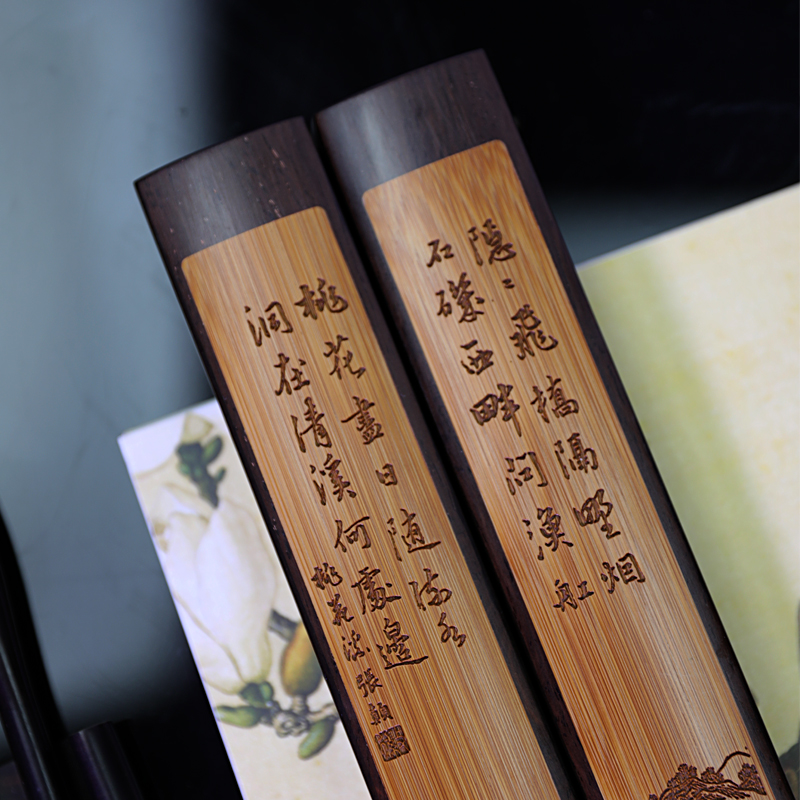 隱〻飛橋隔野烟
石磯西畔问漁舡
桃花盡日随流水
洞在清溪何處邊
桃花溪張賴